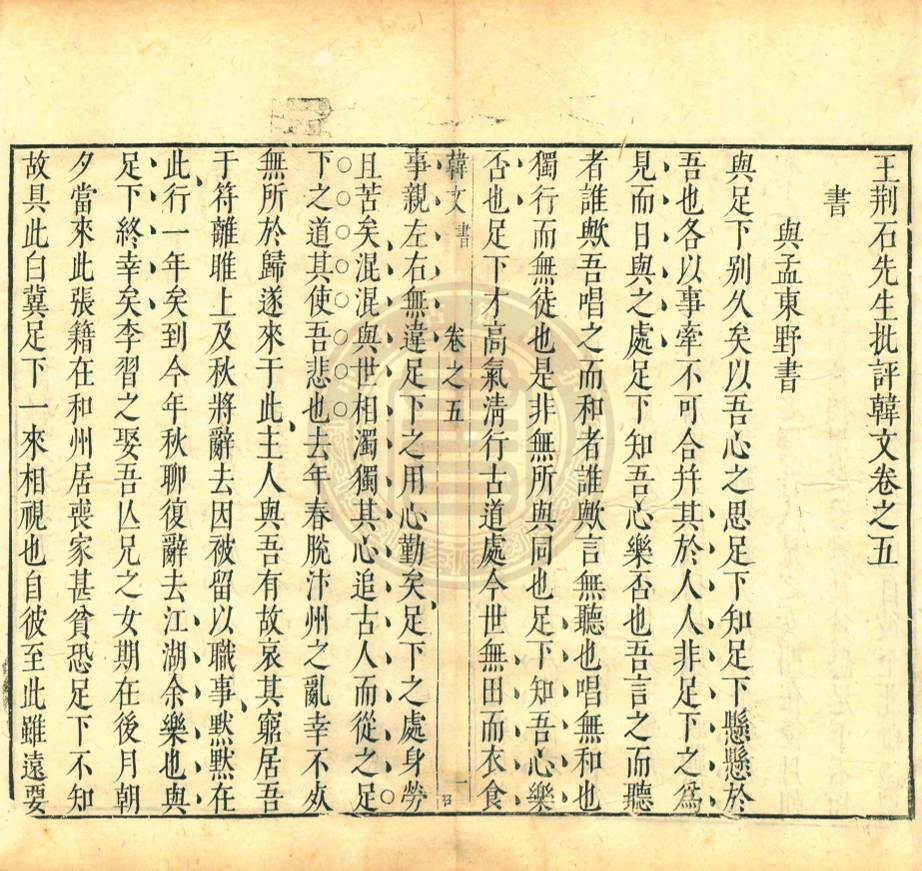 王荆石先生批評韓文卷之五
書
與孟東野書
與足下别久矣以吾心之思足下知足下懸懸於
吾也各以事牽不可合幷其於人人非足下之爲
見而日與之處足下知吾心樂否也吾言之而聽
者誰歟吾唱之而和者誰歟言無聽也唱無和也
獨行而無徒也是非無所與同也足下知吾心樂
否也足下才高氣淸行古道處今世無田而衣食
韓文 書 卷之五 一
事親左右無違足下之用心勤矣足下之處身勞
且苦矣混混與世相濁獨其心追古人而從之足
下之道其使吾悲也去年春脫汴州之亂幸不死
無所於歸遂來于此主人與吾有故哀其窮居吾
于符離睢上及秋將辭去因被留以職事默默在
此行一年矣到今年秋聊復辭去江湖余樂也與
足下終幸矣李習之娶吾亾兄之女期在後月朝
夕當來此張籍在和州居喪家甚貧恐足下不知
故具此白冀足下一來相視也自彼至此雖遠要